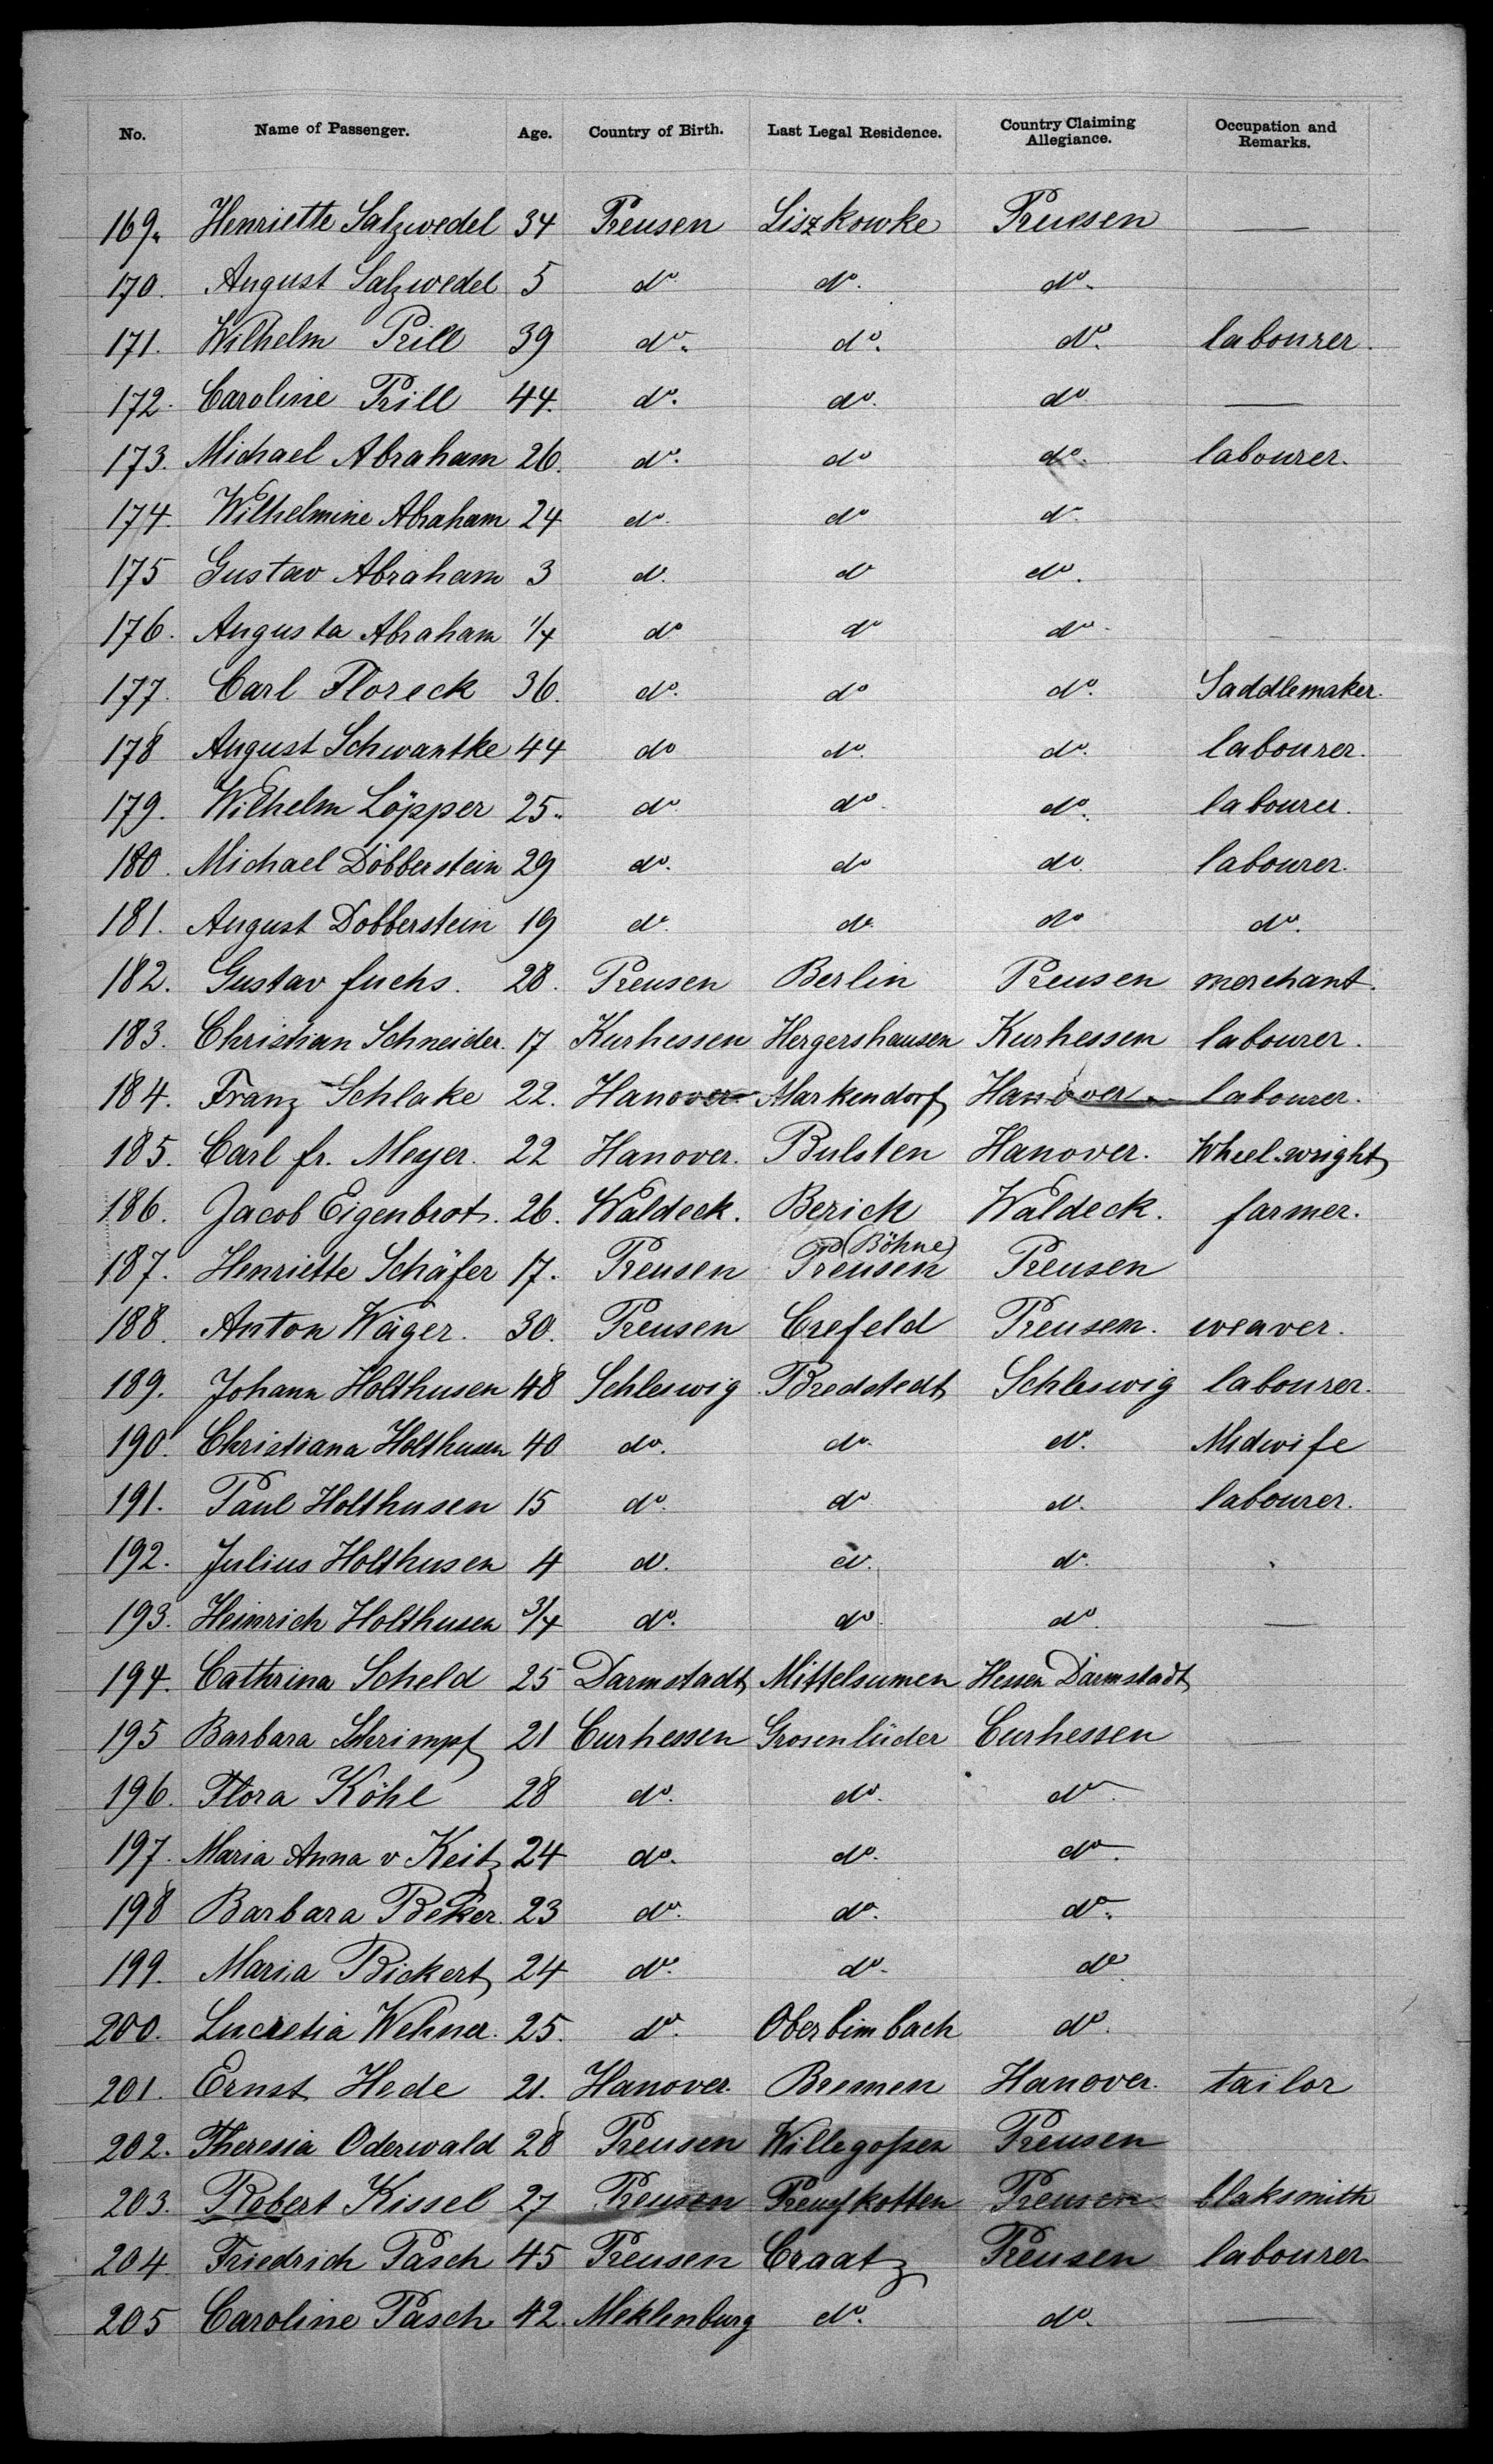 No. Name of Passenger. Age. Country of Birth. Last Legal Residence. Country Claiming Allegiance. Occupation and Remarks.
169. Henriette Salzwedel 34 Preusen Liszkowke Preusen —
170. August Salzwedel 5 do do. do.
171. Wilhelm Prill 39 do. do. do. labourer.
172. Caroline Prill 44. do. do. do —
173. Michael Abraham 26. do. do do. labourer.
174. Wilhelmine Abraham 24 do. do do.
175 Gustav Abraham 3 do. do do.
176. Augusta Abraham 1/4 do do do.
177. Carl Floreck 36. do. do do. Saddlemaker.
178 August Schwantke 44 do do. do. labourer.
179. Wilhelm Löpper 25. do do. do. labourer.
180. Michael Döbberstein 29 do. do do. labourer.
181. August Dobberstein 19 do. do. do do.
182. Gustav fuchs. 28. Preusen Berlin Preusen merchant.
183. Christian Schneider. 17 Kurhessen Hergershausen Kurhessen labourer.
184. Franz Schlake 22. Hanover Markendorf Hanover labourer.
185. Carl fr. Meyer. 22 Hanover. Bulsten Hanover. Wheel-wright
186. Jacob Eigenbrot. 26. Waldeck. Berich Waldeck. farmer.
187. Henriette Schäfer 17. Preusen Preusen (Böhne) Preusen
188. Anton Wäger. 30. Preusen Crefeld Preusen. weaver.
189. Johann Holthusen 48 Schleswig Bredstedt Schleswig labourer.
190. Christiana Holthusen 40 do. do. do. Midwife
191. Paul Holthusen 15 do. do do. labourer.
192. Julius Holthusen 4 do. do. do.
193. Heinrich Holthusen 3/4 do. do. do. —
194. Cathrina Scheld 25 Darmstadt Mittelsumen Hessen Darmstadt
195 Barbara Schrimpf 21 Curhessen Grosenlüder Curhessen —
196. Flora Köhl 28 do. do. do.
197. Maria Anna v Keitz 24 do. do. do.
198 Barbara Beker. 23 do. do. do.
199. Maria Bickert 24 do. do. do
200. Lucretia Wehner. 25. do. Oberbimbach do.
201. Ernst Hede 21. Hanover. Bremen Hanover. tailor
202. Theresia Oderwald 28 Preusen Willegoßen Preusen
203. Robert Kissel 27 Preusen Preußkotten Preusen blaksmith
204 Friedrich Pasch 45 Preusen Craatz Preusen labourer
205 Caroline Pasch 42. Meklenburg do. do. —